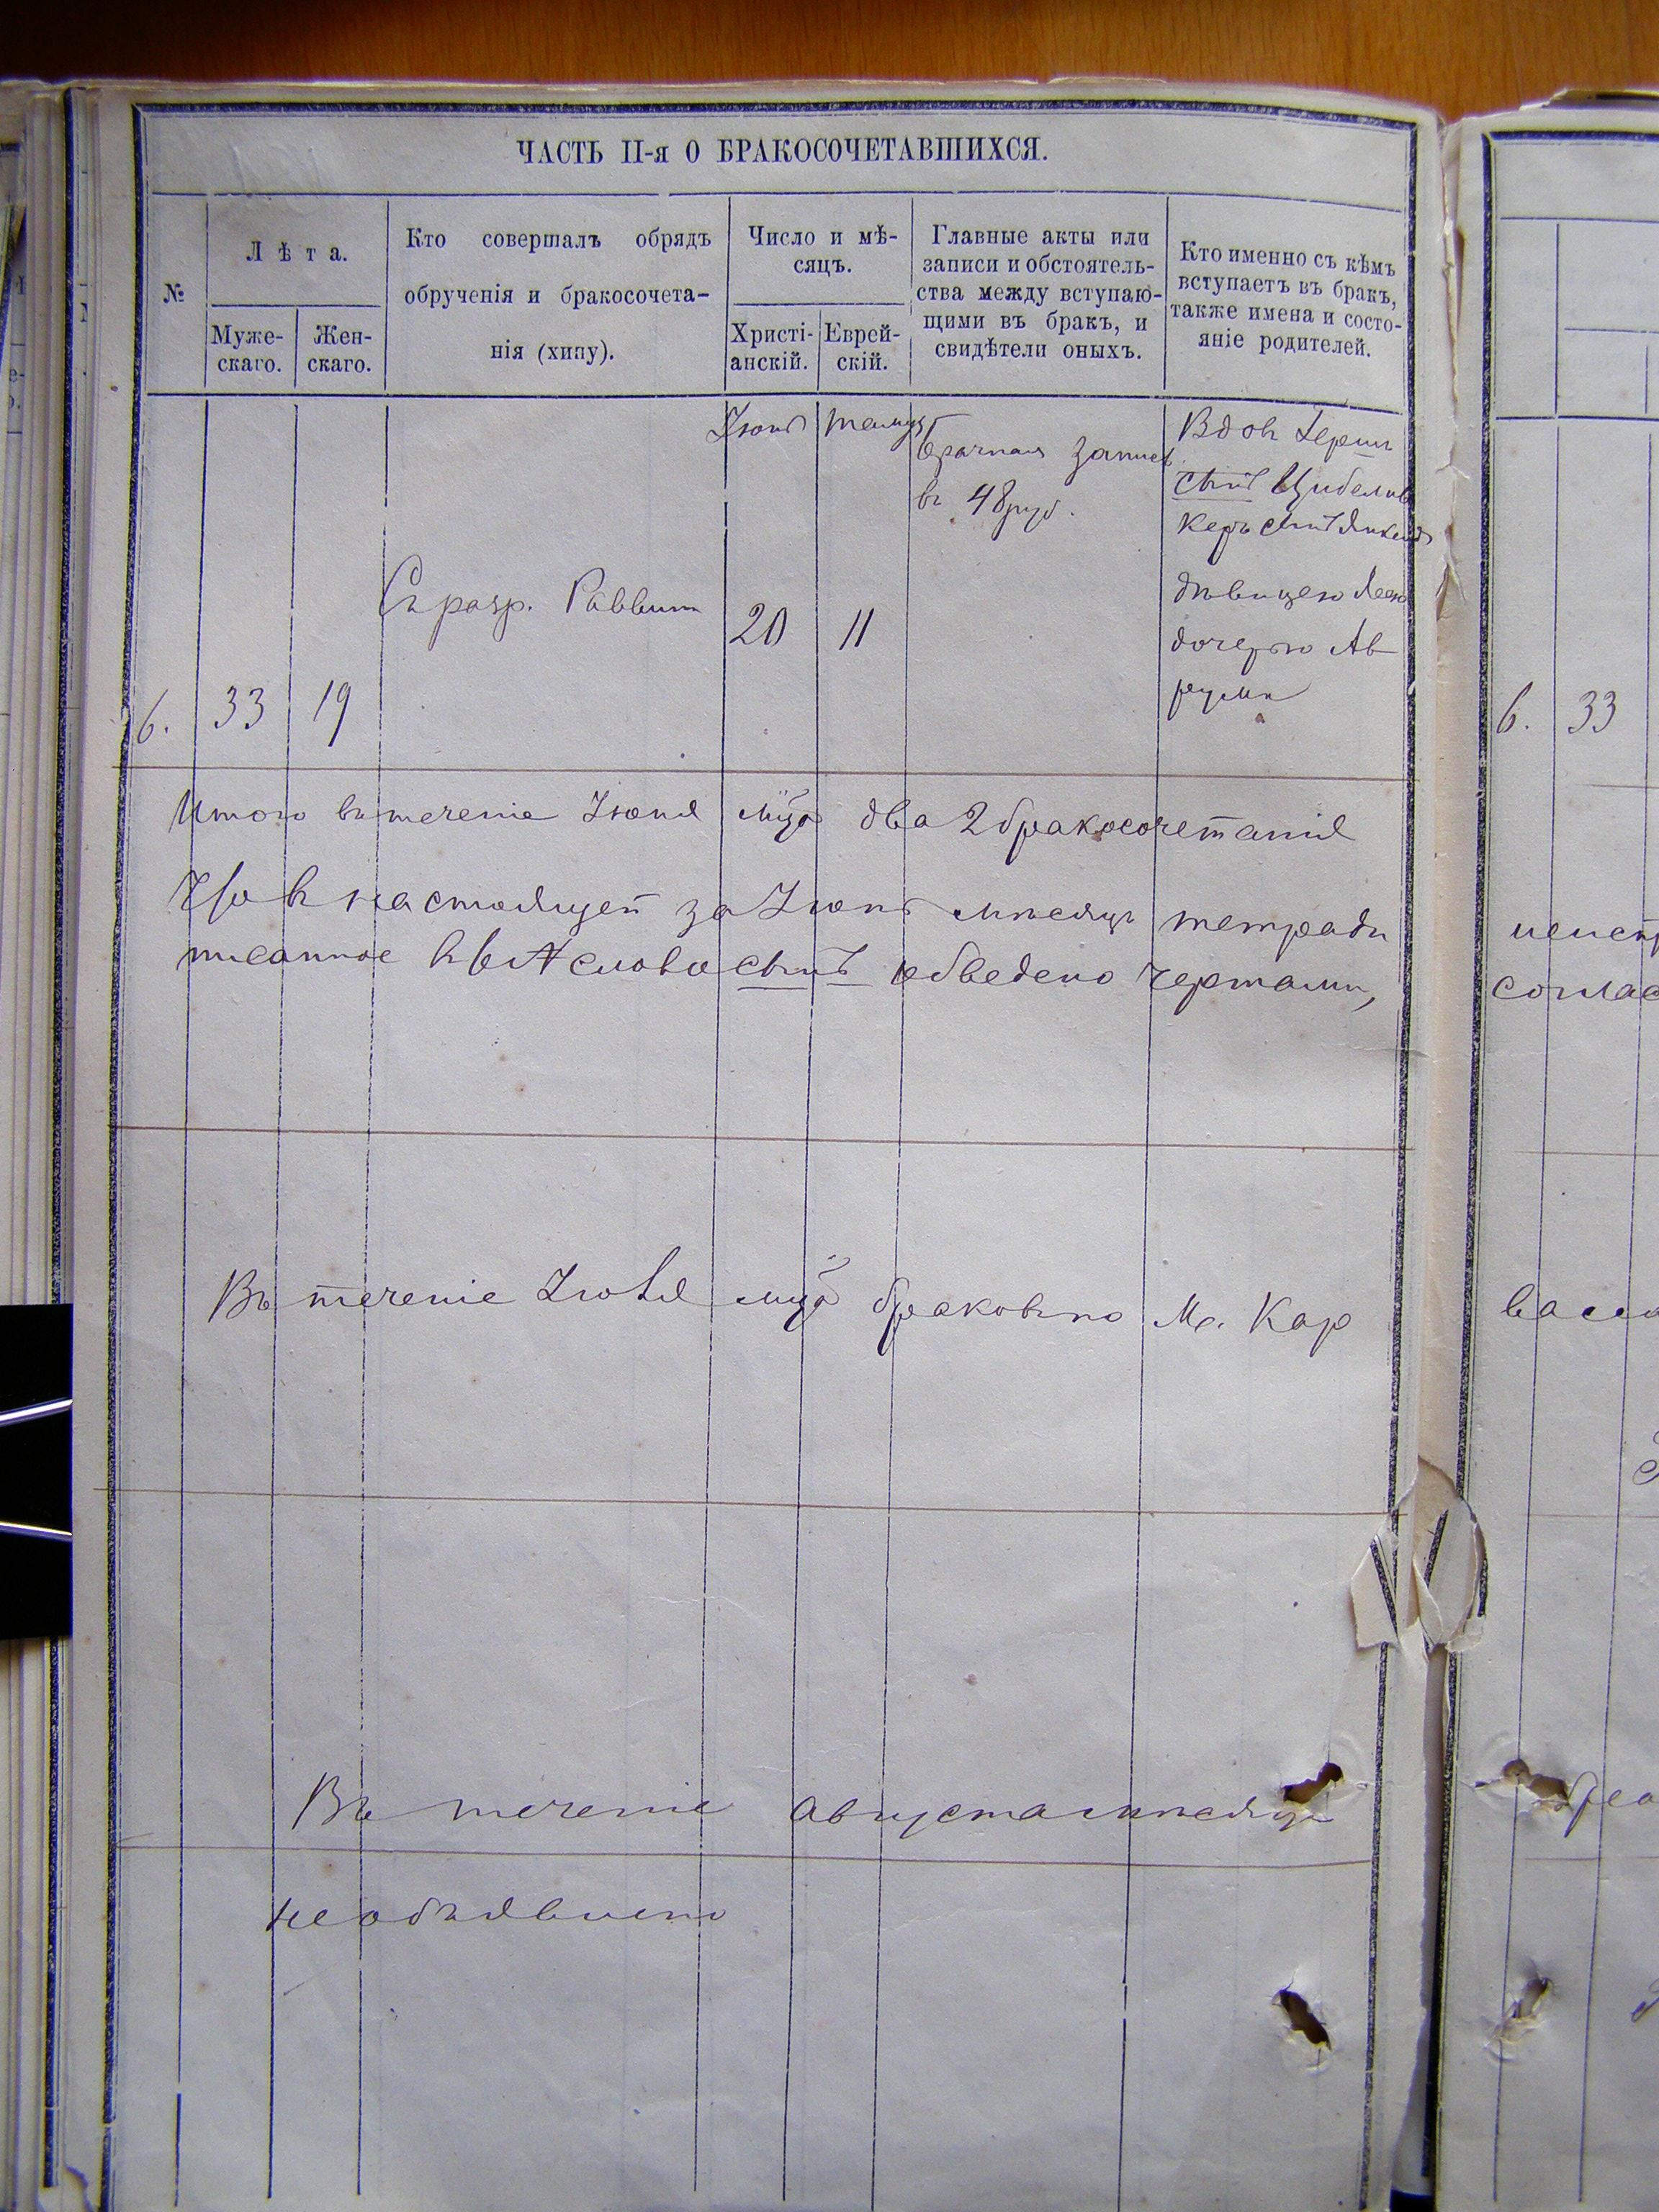 ЧАСТЬ II-я О БРАКОСОЧЕТАВШИХСЯ.
№
Лѣта.
Муже-
скаго.
Жен-
скаго.
Кто совершалъ обрядъ
обрученія и бракосочета-
нія (хипу).
Число и мѣ-
сяцъ.
Христі-
анскій.
Еврей-
скій.
Главные акты или
записи и обстоятель-
ства между вступаю-
щими въ бракъ, и
свидѣтели оныхъ.
Кто именно съ кѣмъ
вступаетъ въ бракъ,
также имена и состо-
яніе родителей.
6.
33
19
Съ разр. Раввина
Іюнь
20
тамузъ
11
Брачная запись
въ 48 руб.
Вдов Герш
сынъ
керъ сынъ
дѣвицею Леею
дочерью Ав
рума
Итого въ теченіе Іюня мца два 2 бракосочетанія
Что в настоящей за Іюнь мѣсяцъ тетради
писанное слово сынъ обведено чертами,
Въ теченіе Іюля мца браковъ по М. Кар
Въ теченіе августа мѣсяца
необъявлено
6.
33